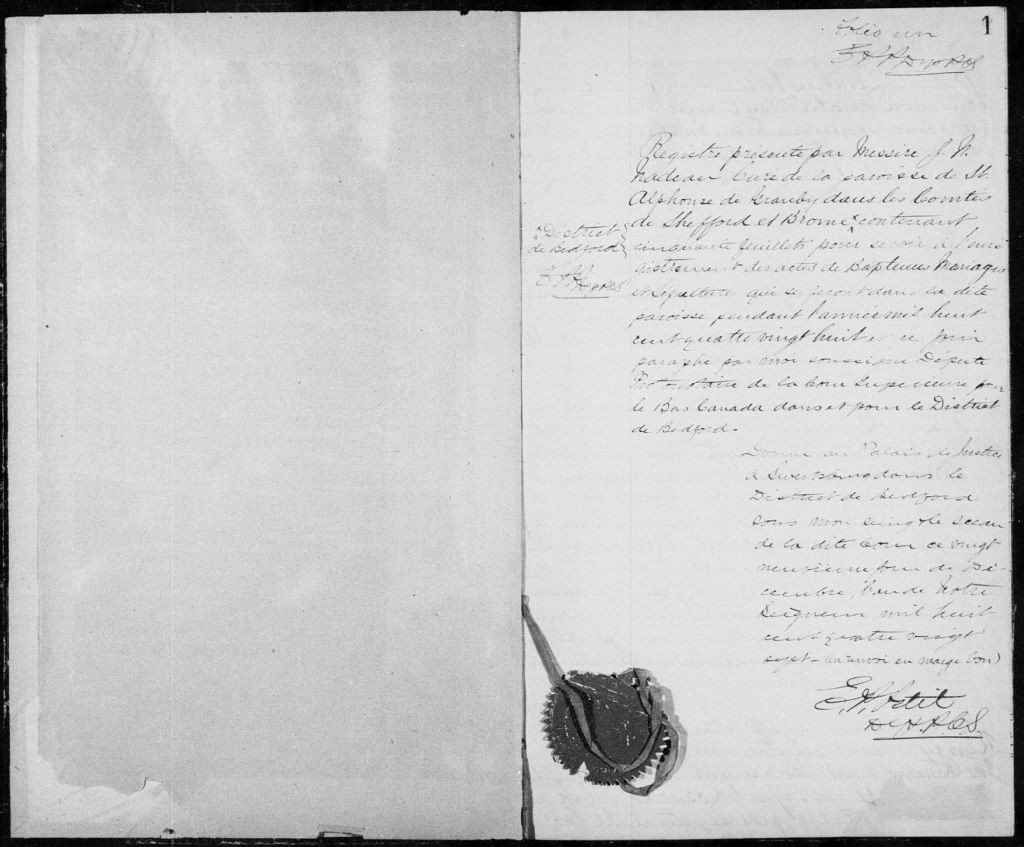 1
folio un
Dy P.C.S
Registre présenté par Messire J. N.
Nadeau, Curé de la paroisse de St.
Alphonse de Granby dans les Comtés
de Shefford et Brome ^ contenant
^ District
de Bedford
Dy P.C.S
cinquante feuillets pour servir à l'enré-
gistrement des actes de Baptemes Mariages
et Sépulture qui se feront dans la dite
paroisse pendant l'année mil huit
cent quatre vingt huit et ce jour
paraphé par moi soussigné Député
Protonotaire de la Cour Superieure pour
le Bas Canada dans et pour le District
de Bedford.
Donné au Palais de Justice
à Sweetsburg dans le
District de Bedford
sous mon seing & le sceau
de la dite Cour ce vingt
neuvieme jour de Dé-
cembre, l'an de Notre
Seigneur mil huit
cent quatre vingt
sept - (un renvoi en marge bon)
Dy P.C.S.